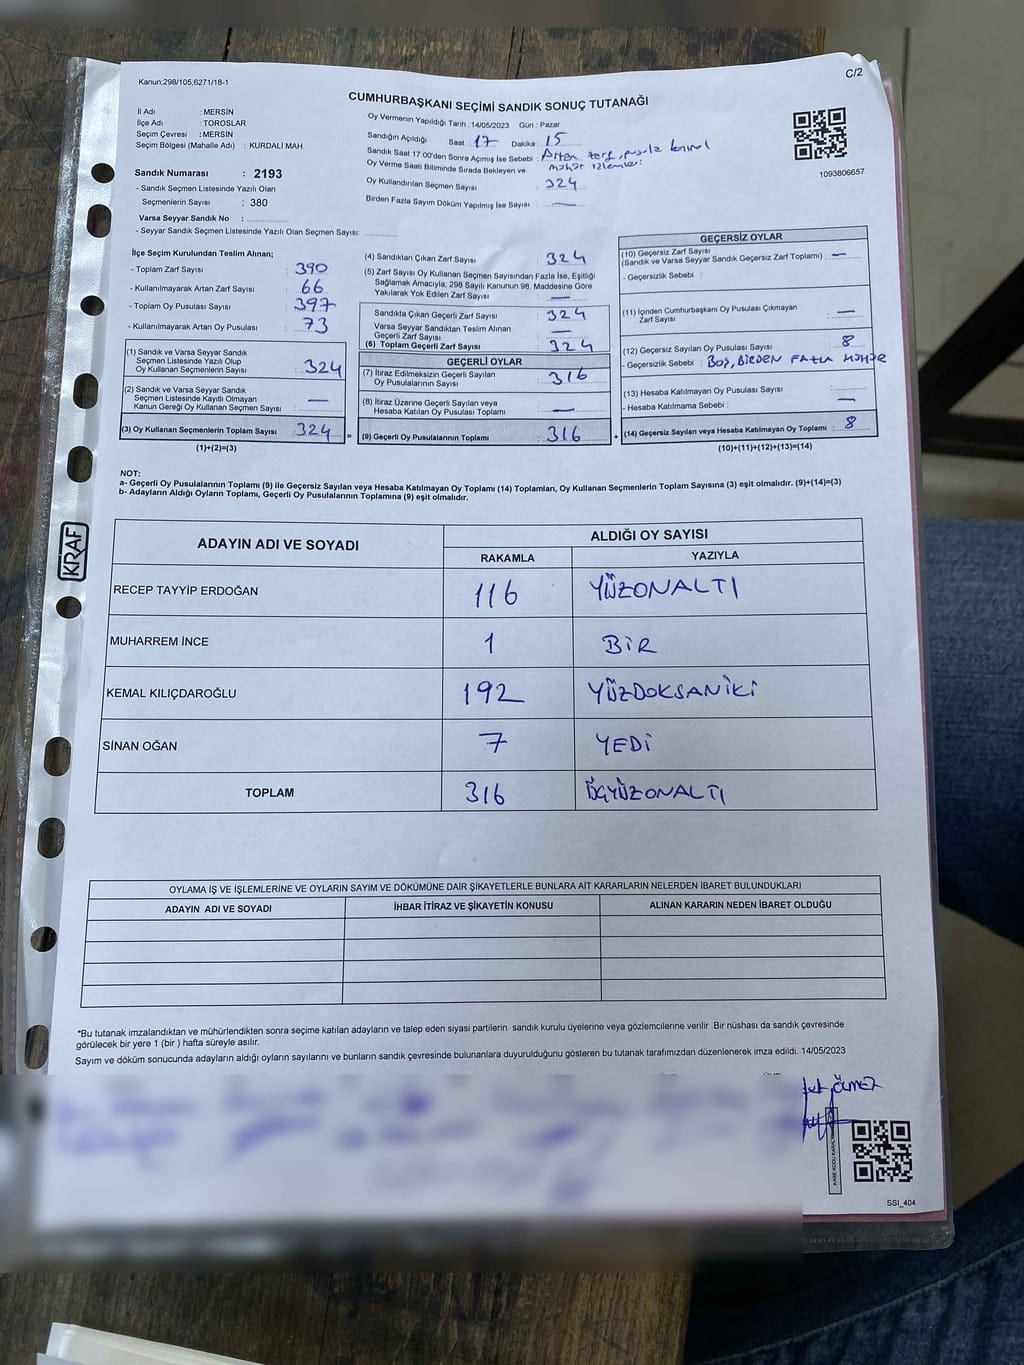 Kanun;298/105;6271/16-1
C/2
CUMHURBAŞKANI SEÇİMİ SANDIK SONUÇ TUTANAĞI
İl Adı : MERSİN
İlçe Adı : TOROSLAR
Seçim Çevresi : MERSİN
Seçim Bölgesi (Mahalle Adı) : KURDALİ MAH.
Sandık Numarası : 2193
- Sandık Seçmen Listesinde Yazılı Olan
Seçmenlerin Sayısı : 380
Varsa Seyyar Sandık No :
- Seyyar Sandık Seçmen Listesinde Yazılı Olan Seçmen Sayısı:
Oy Vermenin Yapıldığı Tarih : 14/05/2023 Gün : Pazar
Sandığın Açıldığı Saat : 17 Dakika : 15
Sandık Saat 17:00'den Sonra Açımış İse Sebebi : Artan
Oy Verme Saati Bitiminde Sırada Bekleyen ve
Oy Kullandırılan Seçmen Sayısı : 324
Birden Fazla Sayım Döküm Yapılmış İse Sayısı : —
1093806657
İlçe Seçim Kurulundan Teslim Alınan;
- Toplam Zarf Sayısı : 390
- Kullanılmayarak Artan Zarf Sayısı : 66
- Toplam Oy Pusulası Sayısı : 397
- Kullanılmayarak Artan Oy Pusulası : 73
(1) Sandık ve Varsa Seyyar Sandık
Seçmen Listesinde Yazılı Olup
Oy Kullanan Seçmenlerin Sayısı : 324
(2) Sandık ve Varsa Seyyar Sandık
Seçmen Listesinde Kayıtlı Olmayan
Kanun Gereği Oy Kullanan Seçmen Sayısı : —
(3) Oy Kullanan Seçmenlerin Toplam Sayısı : 324 =
(1)+(2)=(3)
(4) Sandıktan Çıkan Zarf Sayısı : 324
(5) Zarf Sayısı Oy Kullanan Seçmen Sayısından Fazla İse, Eşitliği
Sağlamak Amacıyla, 298 Sayılı Kanunun 98. Maddesine Göre
Yakılarak Yok Edilen Zarf Sayısı : —
Sandıkta Çıkan Geçerli Zarf Sayısı : 324
Varsa Seyyar Sandıktan Teslim Alınan
Geçerli Zarf Sayısı : —
(6) Toplam Geçerli Zarf Sayısı : 324
GEÇERLİ OYLAR
(7) İtiraz Edilmeksizin Geçerli Sayılan
Oy Pusulalarının Sayısı : 316
(8) İtiraz Üzerine Geçerli Sayılan veya
Hesaba Katılan Oy Pusulası Toplamı : —
(9) Geçerli Oy Pusulalarının Toplamı : 316 +
GEÇERSİZ OYLAR
(10) Geçersiz Zarf Sayısı
(Sandık ve Varsa Seyyar Sandık Geçersiz Zarf Toplamı) : —
- Geçersizlik Sebebi :
(11) İçinden Cumhurbaşkanı Oy Pusulası Çıkmayan
Zarf Sayısı : —
(12) Geçersiz Sayılan Oy Pusulası Sayısı : 8
- Geçersizlik Sebebi : BOŞ, BİRDEN FAZLA MÜHÜR
(13) Hesaba Katılmayan Oy Pusulası Sayısı :
- Hesaba Katılmama Sebebi : —
(14) Geçersiz Sayılan veya Hesaba Katılmayan Oy Toplamı : 8
(10)+(11)+(12)+(13)=(14)
NOT:
a- Geçerli Oy Pusulalarının Toplamı (9) ile Geçersiz Sayılan veya Hesaba Katılmayan Oy Toplamı (14) Toplamları, Oy Kullanan Seçmenlerin Toplam Sayısına (3) eşit olmalıdır. (9)+(14)=(3)
b- Adayların Aldığı Oyların Toplamı, Geçerli Oy Pusulalarının Toplamına (9) eşit olmalıdır.
KRAF
ADAYIN ADI VE SOYADI ALDIĞI OY SAYISI
RAKAMLA YAZIYLA
RECEP TAYYİP ERDOĞAN 116 YÜZONALTI
MUHARREM İNCE 1 BİR
KEMAL KILIÇDAROĞLU 192 YÜZDOKSANİKİ
SİNAN OĞAN 7 YEDİ
TOPLAM 316 ÜÇYÜZONALTI
OYLAMA İŞ VE İŞLEMLERİNE VE OYLARIN SAYIM VE DÖKÜMÜNE DAİR ŞİKAYETLERLE BUNLARA AİT KARARLARIN NELERDEN İBARET BULUNDUKLARI
ADAYIN ADI VE SOYADI İHBAR İTİRAZ VE ŞİKAYETİN KONUSU ALINAN KARARIN NEDEN İBARET OLDUĞU
*Bu tutanak imzalandıktan ve mühürlendikten sonra seçime katılan adayların ve talep eden siyasi partilerin sandık kurulu üyelerine veya gözlemcilerine verilir .Bir nüshası da sandık çevresinde
görülecek bir yere 1 (bir ) hafta süreyle asılır.
Sayım ve döküm sonucunda adayların aldığı oyların sayılarını ve bunların sandık çevresinde bulunanlara duyurulduğunu gösteren bu tutanak tarafımızdan düzenlenerek imza edildi. 14/05/2023
SSI_404